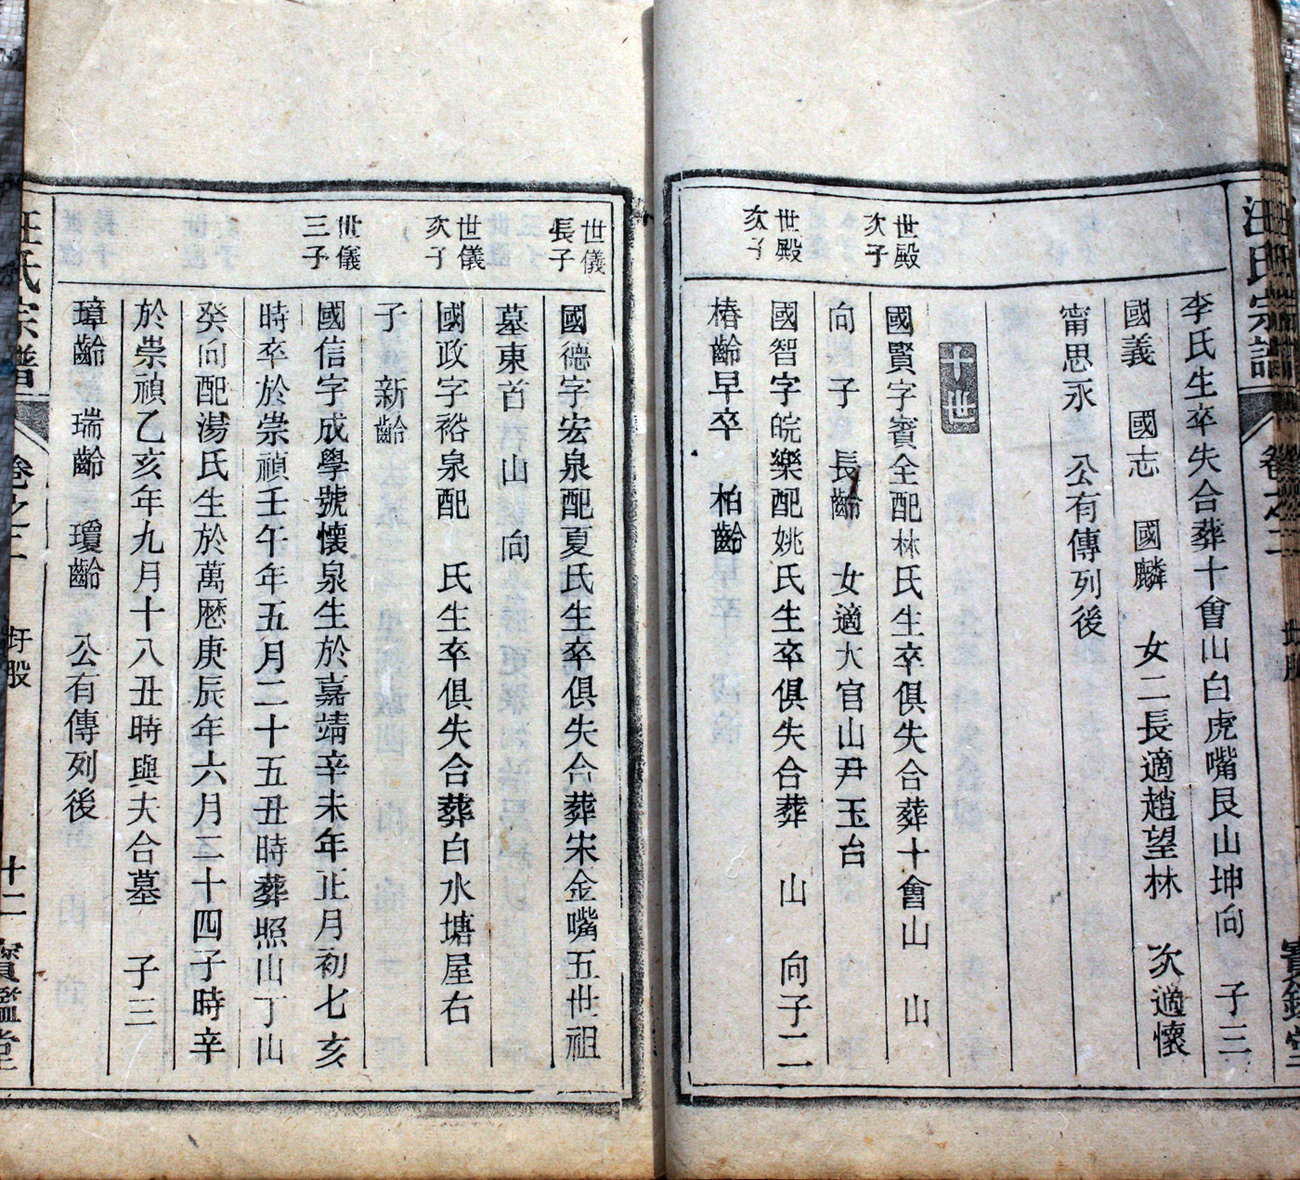 汪氏宗譜 卷之二 圩股 寶鑑堂
李氏生卒失合葬十會山白虎嘴艮山坤向 子三
國義 國志 國麟 女二長適趙望林 次適懷
甯思永 公有傳列後
十世
世殿次子
國賢字賓全配林氏生卒俱失合葬十會山 山
向 子 長齡 女適大官山尹玉台
世殿次子
國智字皖樂配姚氏生卒俱失合葬 山 向子二
椿齡早卒 柏齡
世儀長子
國德字宏泉配夏氏生卒俱失合葬宋金嘴五世祖
墓東首 山 向
世儀次子
國政字裕泉配 氏生卒俱失合葬白水塘屋右
子 新齡
世儀三子
國信字成學號懷泉生於嘉靖辛未年正月初七亥
時卒於崇禎壬午年五月二十五丑時葬照山丁山
癸向配湯氏生於萬曆庚辰年六月二十四子時辛
於崇禎乙亥年九月十八丑時與夫合墓 子三
璋齡 瑞齡 瓊齡 公有傳列後
汪氏宗譜 卷之二 圩股 十二 寶鑑堂